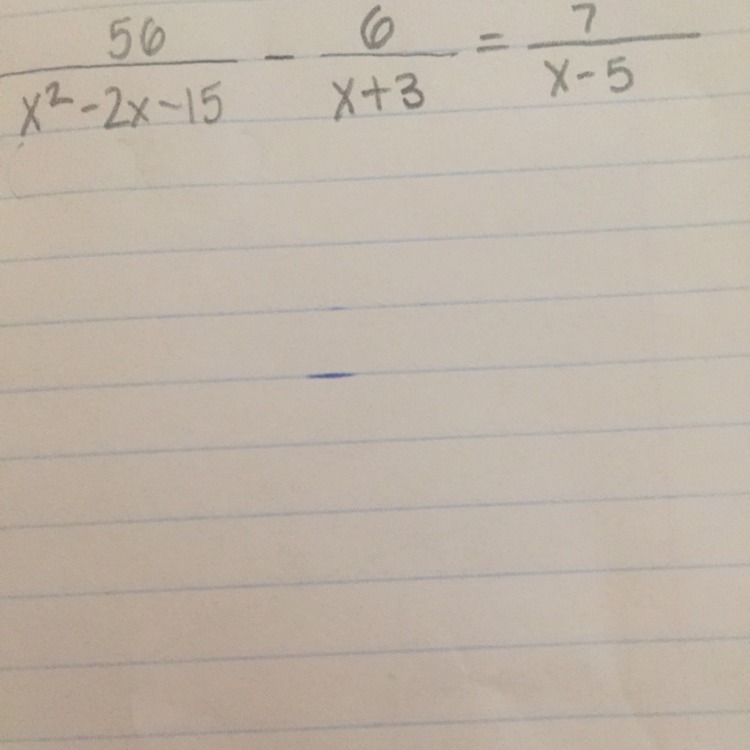 56/(x²-2x-15) - 6/(x+3) = 7/(x-5)